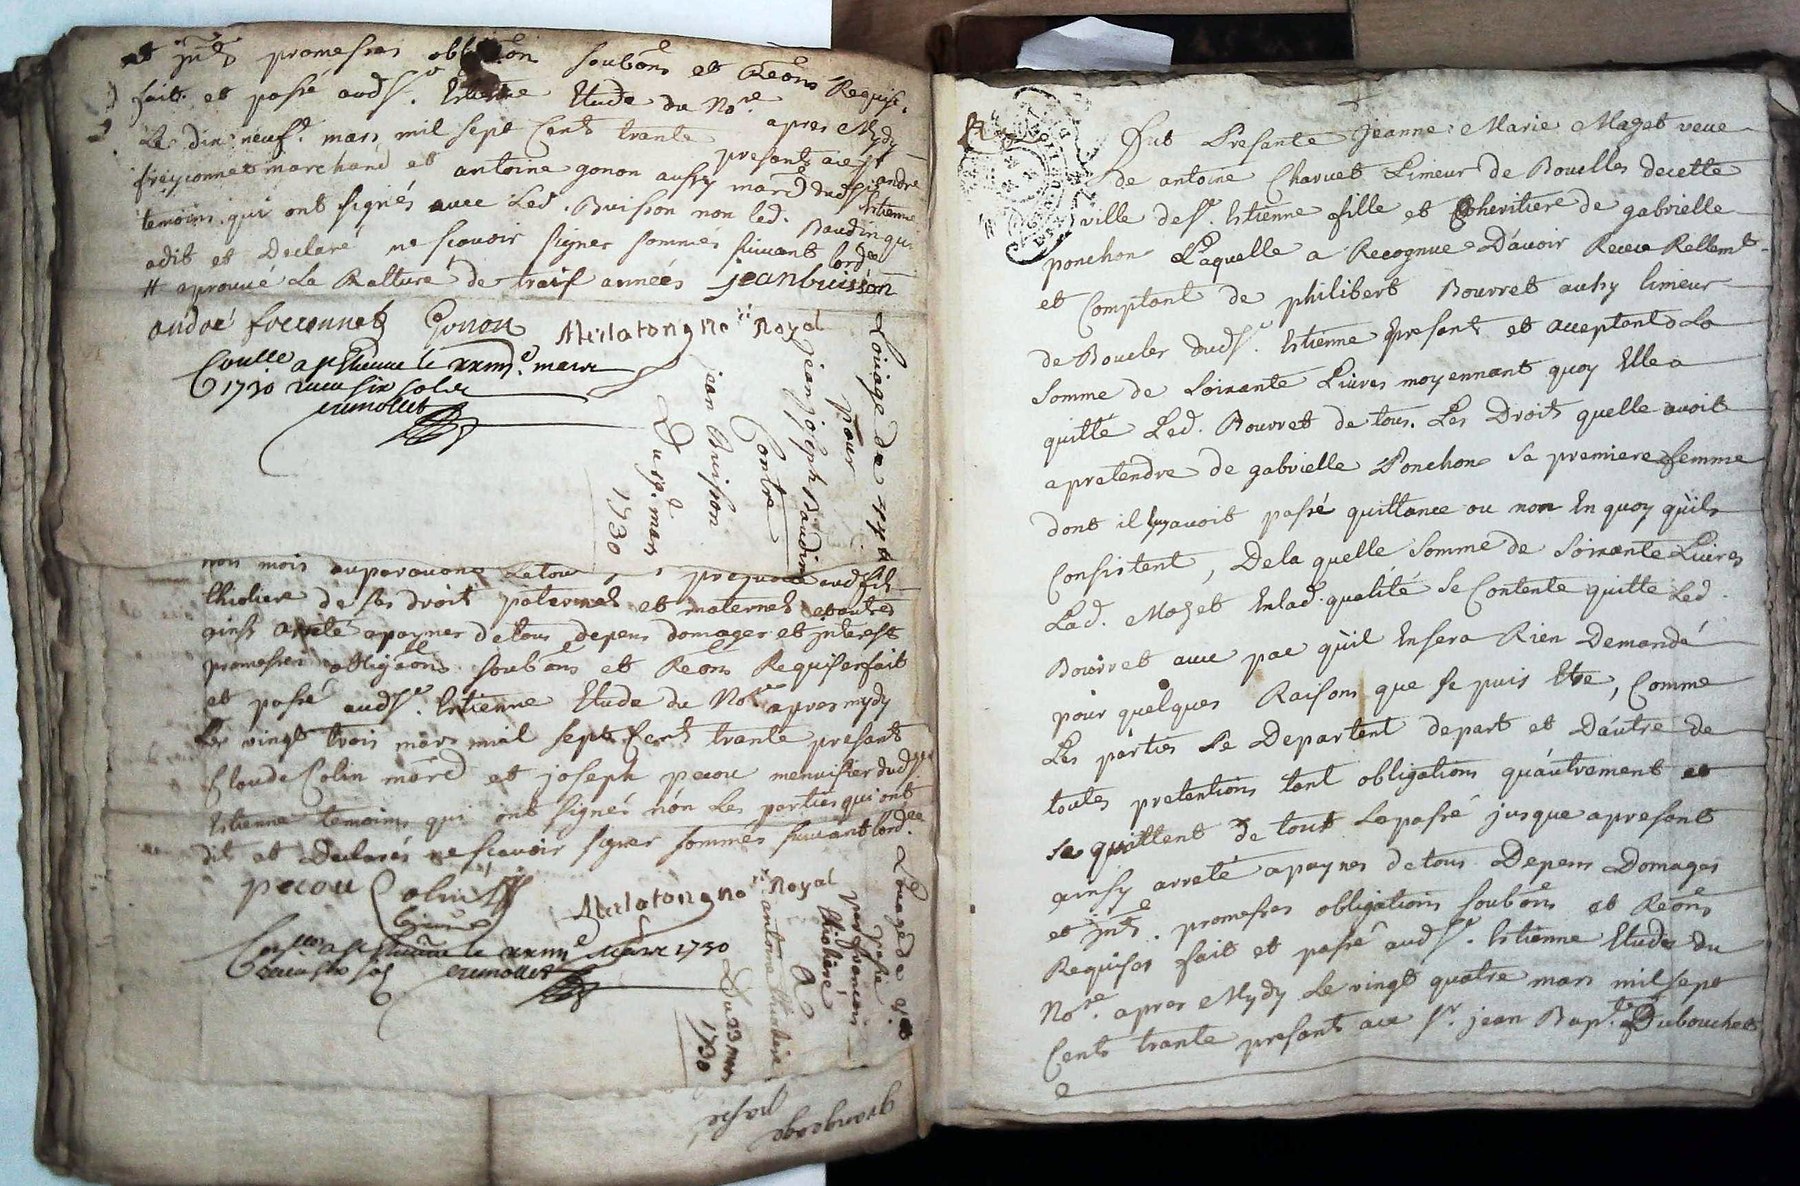 et jnts promesses obligãons soubõns et Reõns Requises
fait et passé aud St. Estienne Etude du Nore apres Mydy
Le dix neuf mars mil sept Cents trante presants sieur andré
freyconnet marchand et antoine gonon aussy marcd dud St Estienne
temoins qui ont signés avec Led. Buisson non led. Baudin qui
adit et Declaré ne scavoir signer sommés suivant lordce
aprouvé La Ratture de trois années jeanbuisson
andré freconnet Gonon
Nore Royal
Conlle a st Etienne le mars
1730 receu six sols
Louage de
Pour
jean joseph Baudin
Contre
jean Buisson
Du 19e mars
1730
non mois auparavant
de ses droit paternels et maternels
ainsy arreté apaynes detous depens domages et jnterest
promesses obligãons soubõns et Reõns Requises fait
et passé aud St. Estienne Etude du Nore apres mydy
Le vingt trois mars mial sept Cents trante presant
Claude Colin marcd et joseph pecou menuisier dud St
Estienne temoins qui ont signés non Les parties qui ont
dit et Declarés ne scavoir signer sommés suivant lordce
pecou Colin
Nore Royal
Conlle a st Etienne le mars 1730
receu six sols
Louage de
passé
par francois
thioliere
A
antoine thioliere
Du 23 mars
1730
Fut Presante Jeanne Marie Mazet veue
de antoine Charvet Limeur de Boucles decette
ville de St. Estienne fille et Coheritiere de gabrielle
ponchon Laquelle a Recognue Davoir Receu Rellemt
et Comptant de philibert Bouvret aussy limeur
de Boucles dud St. Estienne presant et acceptant La
somme de soixante Livres moyennant quoy Elle a
quitté Led. Bouvret de tous Les Droits quelle avoit
apretendre de gabrielle Ponchon sa premiere femme
dont il luy avoit passé quittance ou non En quoy quils
Consistent, De la quelle somme de soixante Livres
Lad. Mazet Enlad. qualité se Contente quitte Led.
Bouvret avec pac quil Ensera Rien Demandé
pour quelques Raisons que se puis Etre, Comme
Les parties se Departent depart et Dautre de
toutes pretentions tant obligations quautrement et
se quittent de tout Lepassé jusque apresant
ainsy arreté apaynes detous Depens Domages
et jnts. promesses obligations soubõns et Reõns
Requises fait et passé aud St. Estienne Etude du
Nore. apres Mydy Le vingt quatre mars mil sept
Cents trante presants ave Sr. jean Bapte Dubouchet